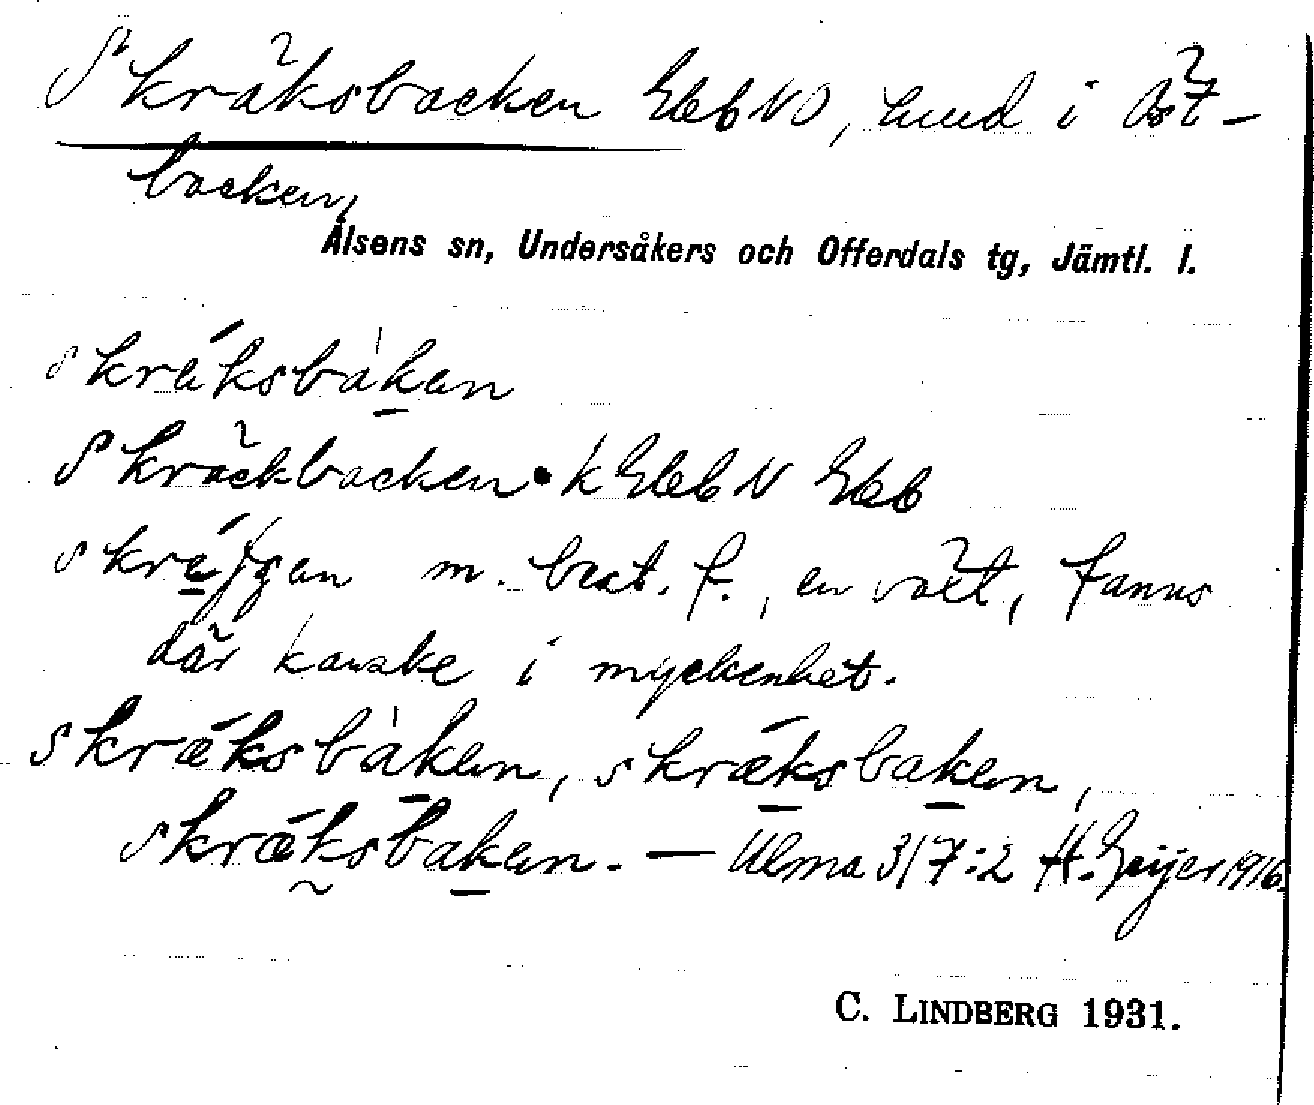 Skräksbacken GebNO, hmd i Öst-
backen,
Alsens sn, Undersåkers och Offerdals tg, Jämtl. l.
skráksbàkan
Skräckbacken • k Geb N Geb
m. best. f., en växt, fanns
där kanske i myckenhet.
skræksbàken, skrǽksbaken,
skrǽksbaken. — Ulma 317:2 H. Geijer 1916.
C. LINDBERG 1931.